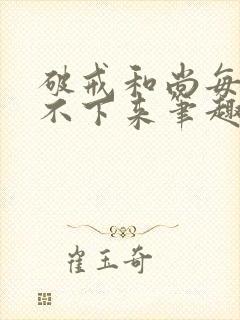 破戒和尚每
不下来笔趣
崔玉奇